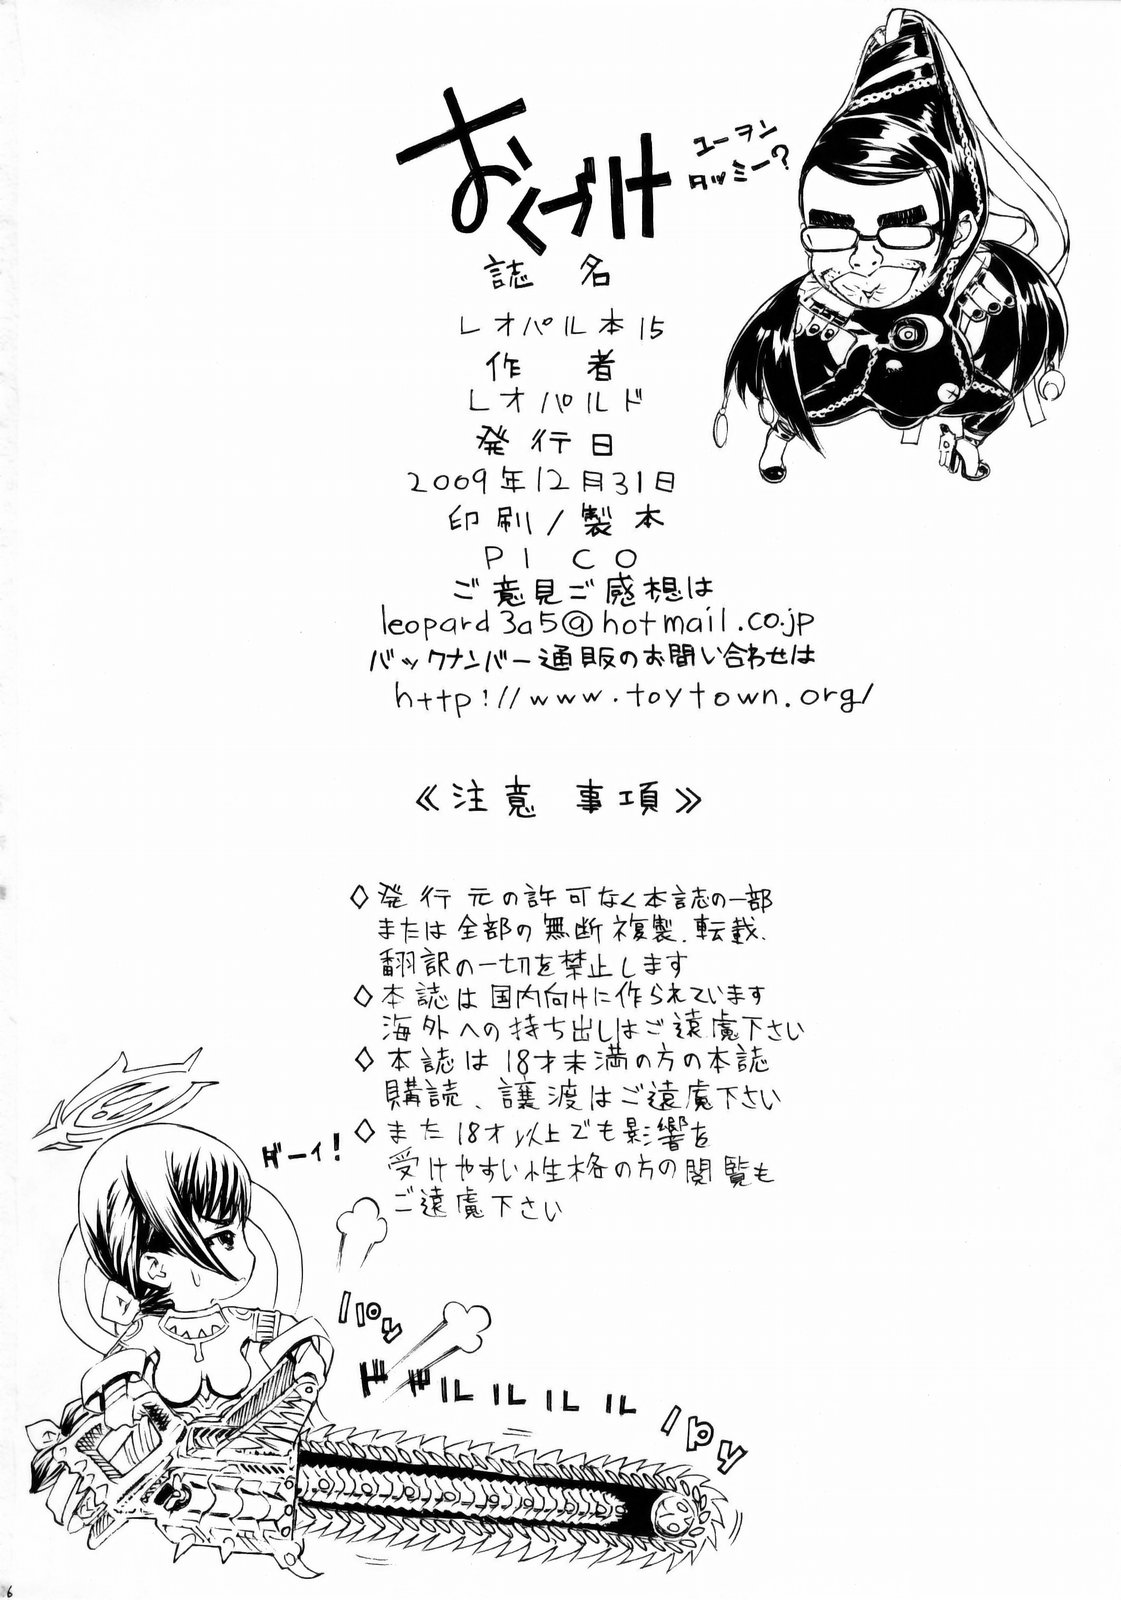 おくづけ
ユーヲン
タッミー?
誌名
レオパル本15
作者
レオパルド
発行日
2009年12月31日
印刷/製本
PICO
ご意見ご感想は
leopard3a5@hotmail.co.jp
バックナンバー通販のお問い合わせは
http://www.toytown.org/
≪注意 事項≫
◇発行元の許可なく本誌の一部
または全部の無断複製、転載、
翻訳の一切を禁止します
◇本誌は国内向けに作られています
海外への持ち出しはご遠慮下さい
◇本誌は18才未満の方の本誌
購読、譲渡はご遠慮下さい
◇また18才以上でも影響を
受けやすい性格の方の閲覧も
ご遠慮下さい
ダーイ!
パパッ
ドドルルルルル
パパッ
6